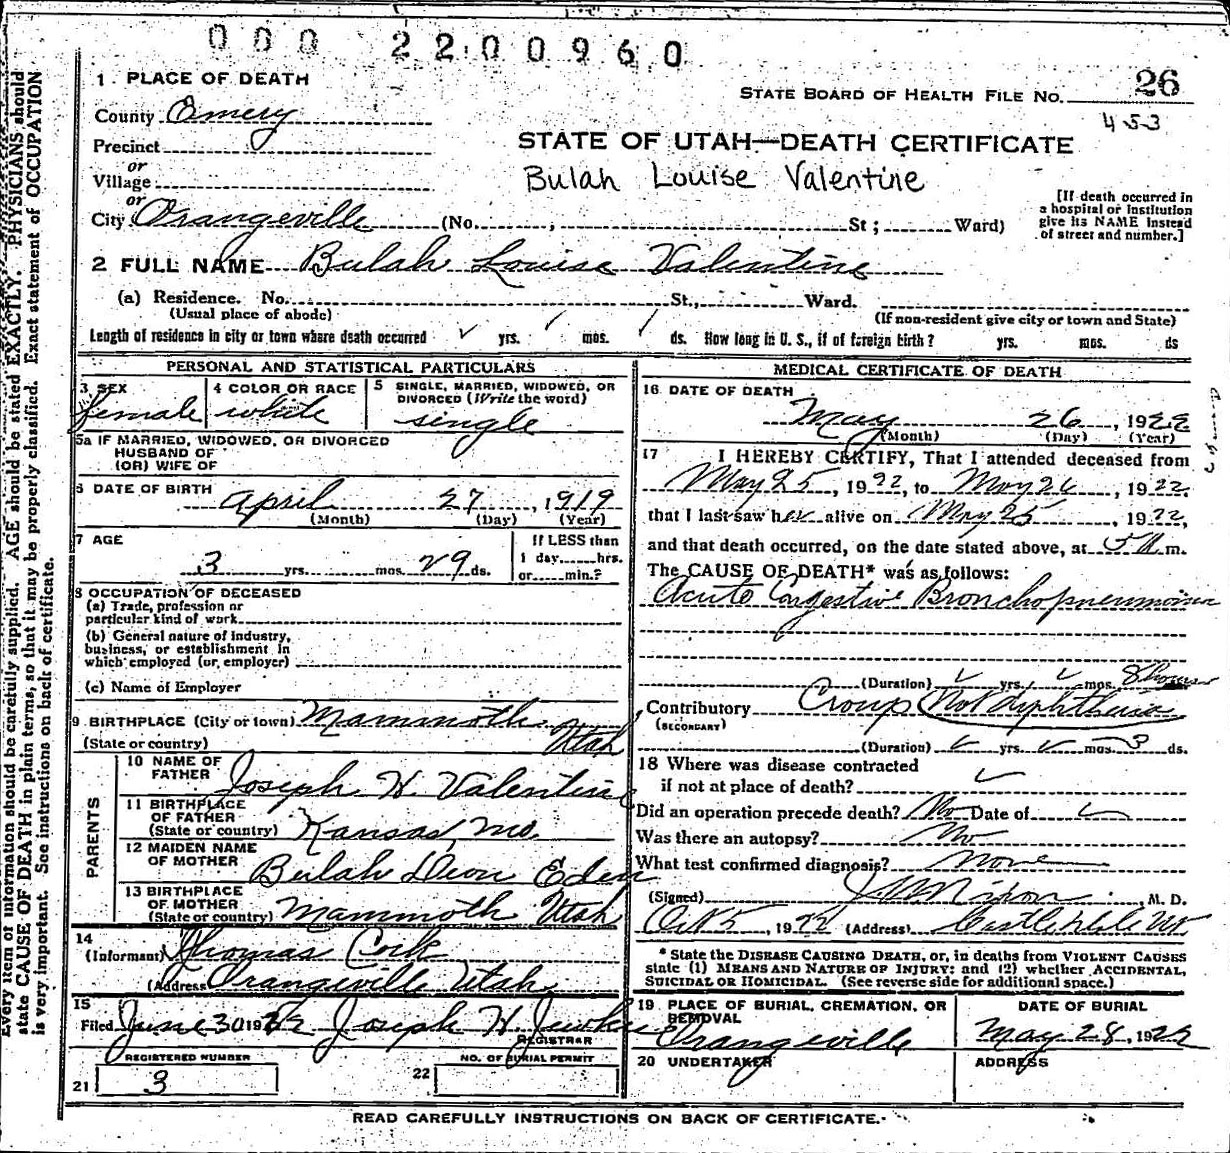 000 2200960
1. PLACE OF DEATH
STATE BOARD OF HEALTH FILE NO. 26
453
County Emery
Precinct
or
Village
or
City Orangeville (No. , St; Ward)
STATE OF UTAH—DEATH CERTIFICATE
Bulah Louise Valentine
[If death occurred in
a hospital or institution
give its NAME instead
of street and number.]
2 FULL NAME Bulah Louise Valentine
(a) Residence. No. St., Ward.
(Usual place of abode)
(If non-resident give city or town and State)
Length of residence in city or town where death occurred yrs. mos. ds. How long in U. S., if of foreign birth? yrs. mos. ds
PERSONAL AND STATISTICAL PARTICULARS
3 SEX
female
4 COLOR OR RACE
white
5 SINGLE, MARRIED, WIDOWED, OR
DIVORCED (Write the word)
single
5a IF MARRIED, WIDOWED, OR DIVORCED
HUSBAND OF
(OR) WIFE OF
6 DATE OF BIRTH April 27, 1919
(Month) (Day) (Year)
7 AGE
3 yrs. mos. 29 ds.
If LESS than
1 day, hrs.
or min.?
8 OCCUPATION OF DECEASED
(a) Trade, profession or
particular kind of work
(b) General nature of industry,
business, or establishment in
which employed (or employer)
(c) Name of Employer
9 BIRTHPLACE (City or town) Mammoth
(State or country) Utah
PARENTS
10 NAME OF
FATHER Joseph H. Valentine
11 BIRTHPLACE
OF FATHER
(State or country) Kansas, Mo.
12 MAIDEN NAME
OF MOTHER Bulah Deon Eden
13 BIRTHPLACE
OF MOTHER
(State or country) Mammoth Utah
14
(Informant) Thomas Cork
(Address Orangeville Utah
15
Filed June 30 1922 Joseph H. Jewkes
REGISTRAR
REGISTERED NUMBER
21 3
NO. OF BURIAL PERMIT
22
MEDICAL CERTIFICATE OF DEATH
16 DATE OF DEATH
May 26, 1922
(Month) (Day) (Year)
17 I HEREBY CERTIFY, That I attended deceased from
May 25, 1922, to May 26, 1922,
that I last saw her alive on May 25, 1922,
and that death occurred, on the date stated above, at 5 A m.
The CAUSE OF DEATH* was as follows:
Acute Congestive Bronchopneumonia
(Duration) yrs. mos. 8 hours
Contributory Croup (Not diphtheria
(SECONDARY)
(Duration) yrs. mos. 3 ds.
18 Where was disease contracted
if not at place of death?
Did an operation precede death? No Date of
Was there an autopsy? No
What test confirmed diagnosis? None
(Signed) Nixon, M. D.
Oct 5, 1922 (Address) Castle Dale Ut
* State the DISEASE CAUSING DEATH, or, in deaths from VIOLENT CAUSES
state (1) MEANS AND NATURE OF INJURY; and (2) whether ACCIDENTAL,
SUICIDAL OR HOMICIDAL. (See reverse side for additional space.)
19 PLACE OF BURIAL, CREMATION, OR
REMOVAL
Orangeville
DATE OF BURIAL
May 28, 1922
20 UNDERTAKER
ADDRESS
READ CAREFULLY INSTRUCTIONS ON BACK OF CERTIFICATE.
Every item of information should be carefully supplied. AGE should be stated EXACTLY. PHYSICIANS should
state CAUSE OF DEATH in plain terms, so that it may be properly classified. Exact statement of OCCUPATION
is very important. See instructions on back of certificate.